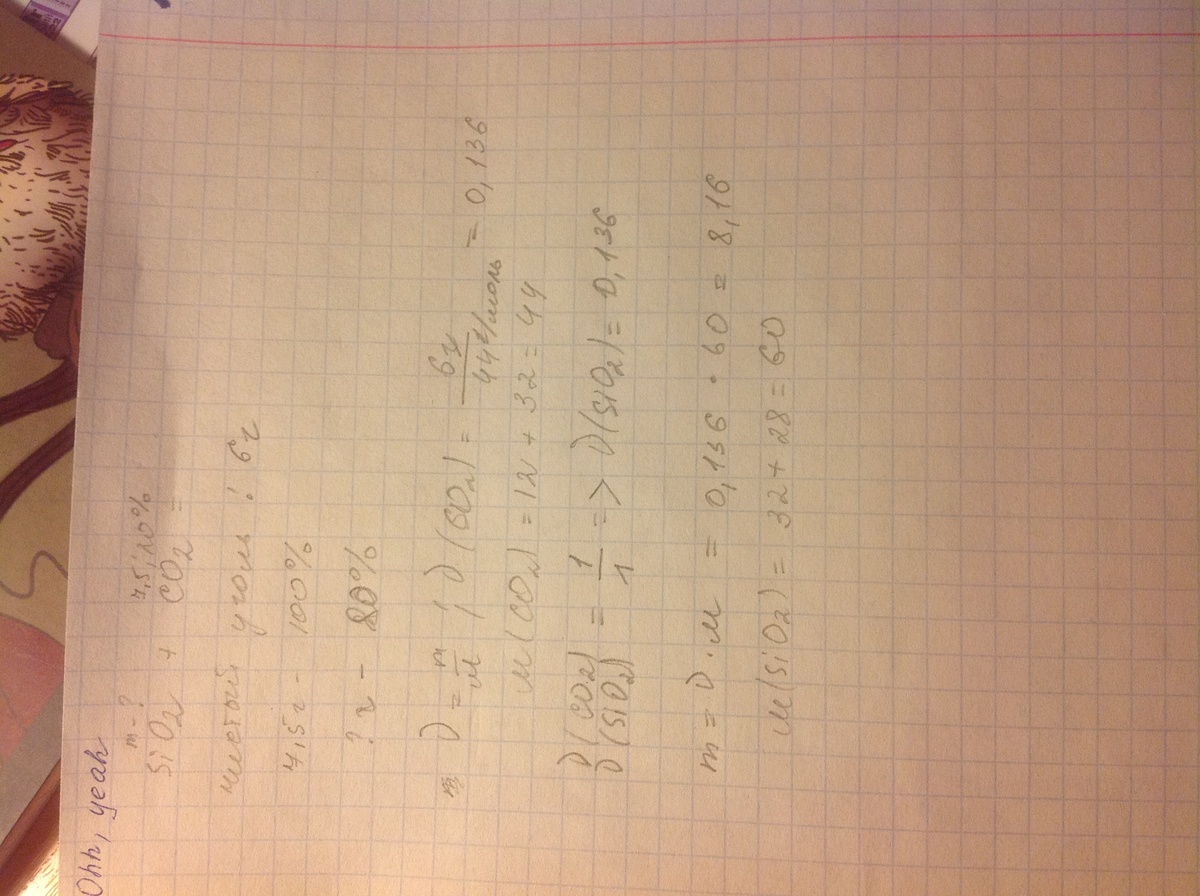 Ohh, yeah
m - ? 7,5; 20%
SiO2 + CO2 =
чистый уголь: 6г
7,5г - 100%
? г - 80%
m ν = m/M ; ν(CO2) = 6г/44г/моль = 0,136
M(CO2) = 12 + 32 = 44
ν(CO2)/ν(SiO2) = 1/1 => ν(SiO2) = 0,136
m = ν · M = 0,136 · 60 = 8,16
M(SiO2) = 32 + 28 = 60